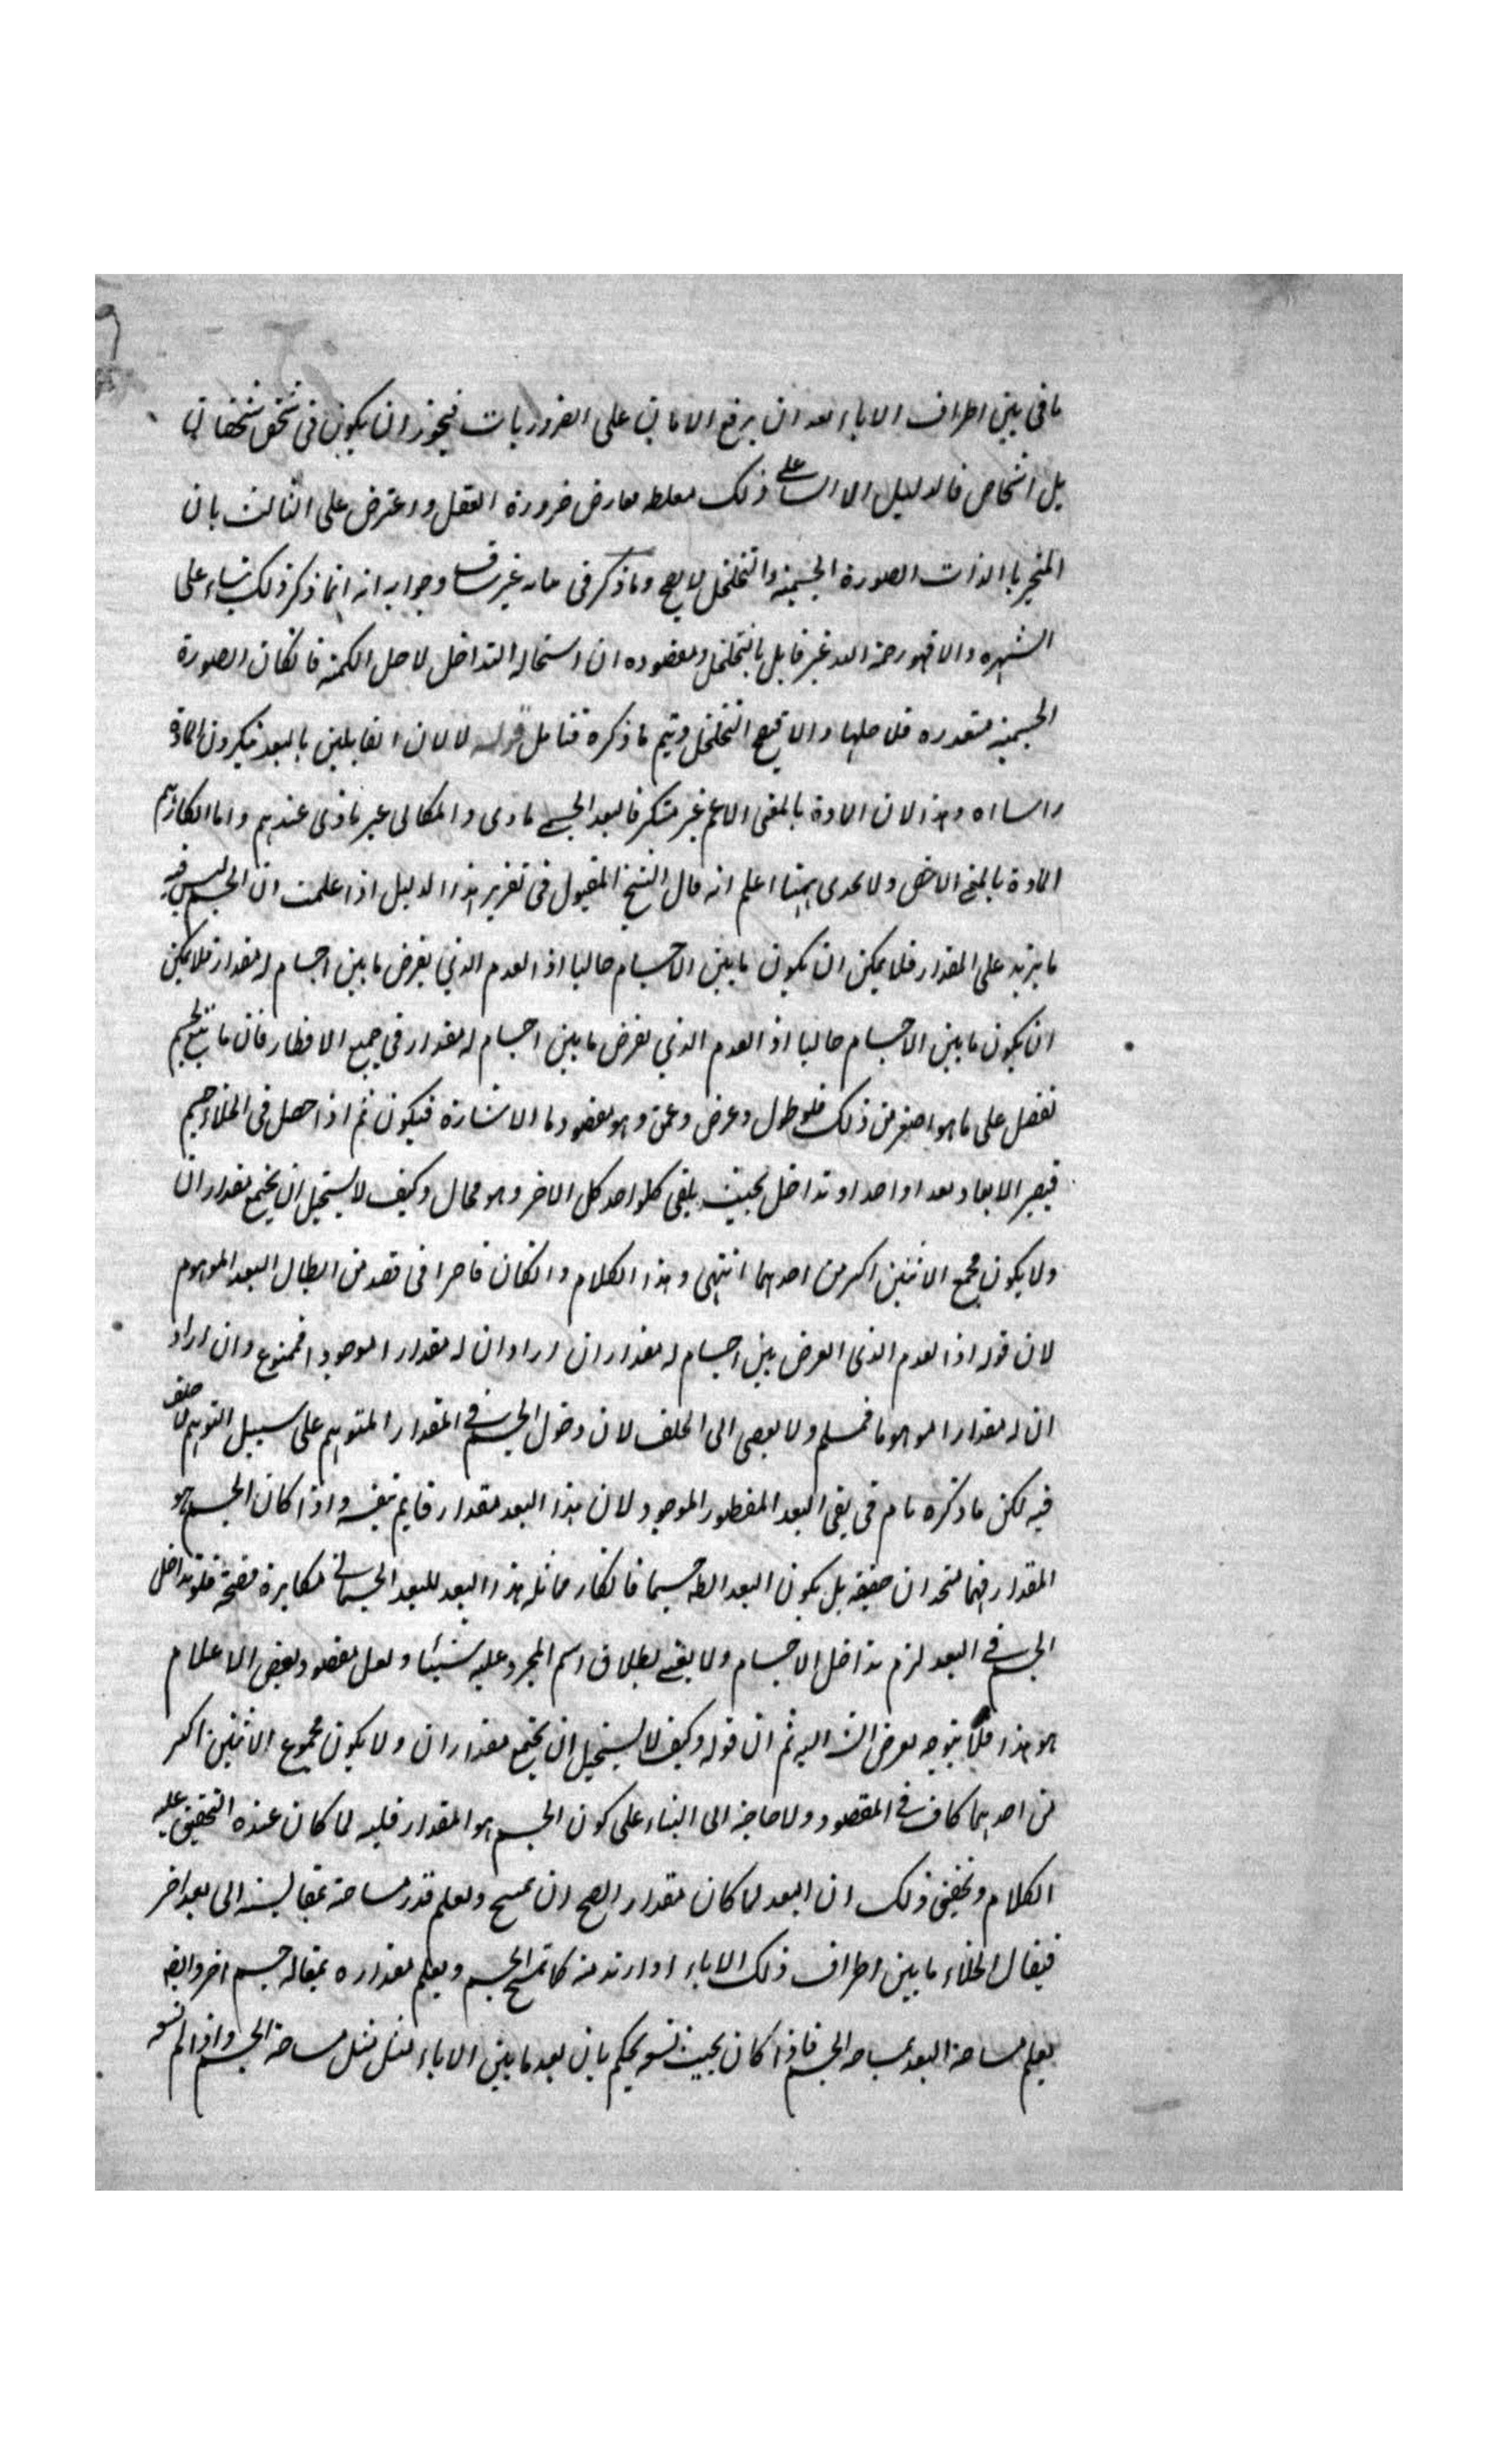 ما فى بين اطراف الاناء بعد ان يرفع الامان على الضروريات فيجوز ان يكون فى شخص شخصان
بل اشخاص فالدليل على ذلك مغلطه معارض ضرورة العقل واعترض على الثالث بان
المتحيز بالذات الصورة الجسمية والتخلخل وما ذكر فى غير وجوابه انه انما ذكر ذلك بناء على
الشهره والا فهو رحمه الله غير قابل بالتخلخل ومقصوده ان استحاله التداخل لاجل الكميه فان كان الصورة
الجسميه متقدره فلاجلها والا التخلخل ويتم ما ذكره فتامل قوله لا لان القايلين بالبعد ينكرون المادة
راسا اه وهذا لان المادة بالمعنى الاعم غير منكر فالبعد الجسمى مادى والمكانى غير مادى عندهم واما انكارهم
المادة بالمعنى الاخص ولا يجدى هيهنا اعلم انه قال الشيخ المقتول فى تقرير هذا الدليل اذا علمت ان الجسم ليس فيه
ما يزيد على المقدار فلا يمكن ان يكون ما بين الاجسام خاليا اذ العدم الذي يفرض ما بين اجسام له مقدار فلا يمكن
ان يكون ما بين الاجسام خاليا اذ العدم الذي يفرض ما بين اجسام له مقدار فى جميع الاقطار فان ما يتسع لجسم
يفضل على ما هو اصغر من ذلك فله طول وعرض وعمق وهو مقصود بالاشارة فيكون ثم اذا حصل فى الخلاء جسم
فيصير الابعاد بعدا واحدا وتداخل بحيث يلقى كل واحد كل الاخر وهو محال وكيف لا يستحيل ان يجتمع مقداران
ولا يكون مجموع الاثنين اكبر من احدهما انتهى وهذا الكلام وان كان قاصرا فى قصد من ابطال البعد الموهوم
لان قوله اذ العدم الذى يفرض بين اجسام له مقدار ان اراد ان له مقدارا موجودا فممنوع وان اراد
ان له مقدارا موهوما فمسلم ولا يفضى الى الخلف لان دخول الجسم فى المقدار المتوهم على سبيل التوهم لا خلف
فيه لكن ما ذكره تام فى نفى البعد المفطور الموجود لان هذا البعد مقدار قايم بنفسه واذا كان الجسم هو
المقدار فهما متحدان حقيقه بل يكون البعد جسما فانكار مماثله هذا البعد للبعد الجسمانى مكابرة فلو تداخل
الجسم فى البعد لزم تداخل الاجسام ولا يغنى اطلاق اسم المجرد عليه شيئا ولعل مقصود بعض الاعلام
هو هذا فلا يتوجه تعرض اليه ثم ان قوله وكيف لا يستحيل ان يجتمع مقداران ولا يكون مجموع الاثنين اكبر
من احدهما كاف فى المقصود ولا حاجة الى البناء على كون الجسم هو المقدار فلعله لما كان عنده التحقيق عليه
الكلام وتحقيق ذلك ان البعد لما كان مقدارا صح ان يمسح ويعلم قدر مساحته بمقايسته الى بعد اخر
فيقال الخلاء ما بين اطراف ذلك الاناء او ازيد منه كما يمسح الجسم ويعلم مقداره بمقايسه جسم اخر وايضا
يعلم مساحة البعد بمساحه الجسم فاذا كان بحيث يسعه يحكم بان بعد ما بين الاناء مثل مساحة الجسم واذا لم يسعه